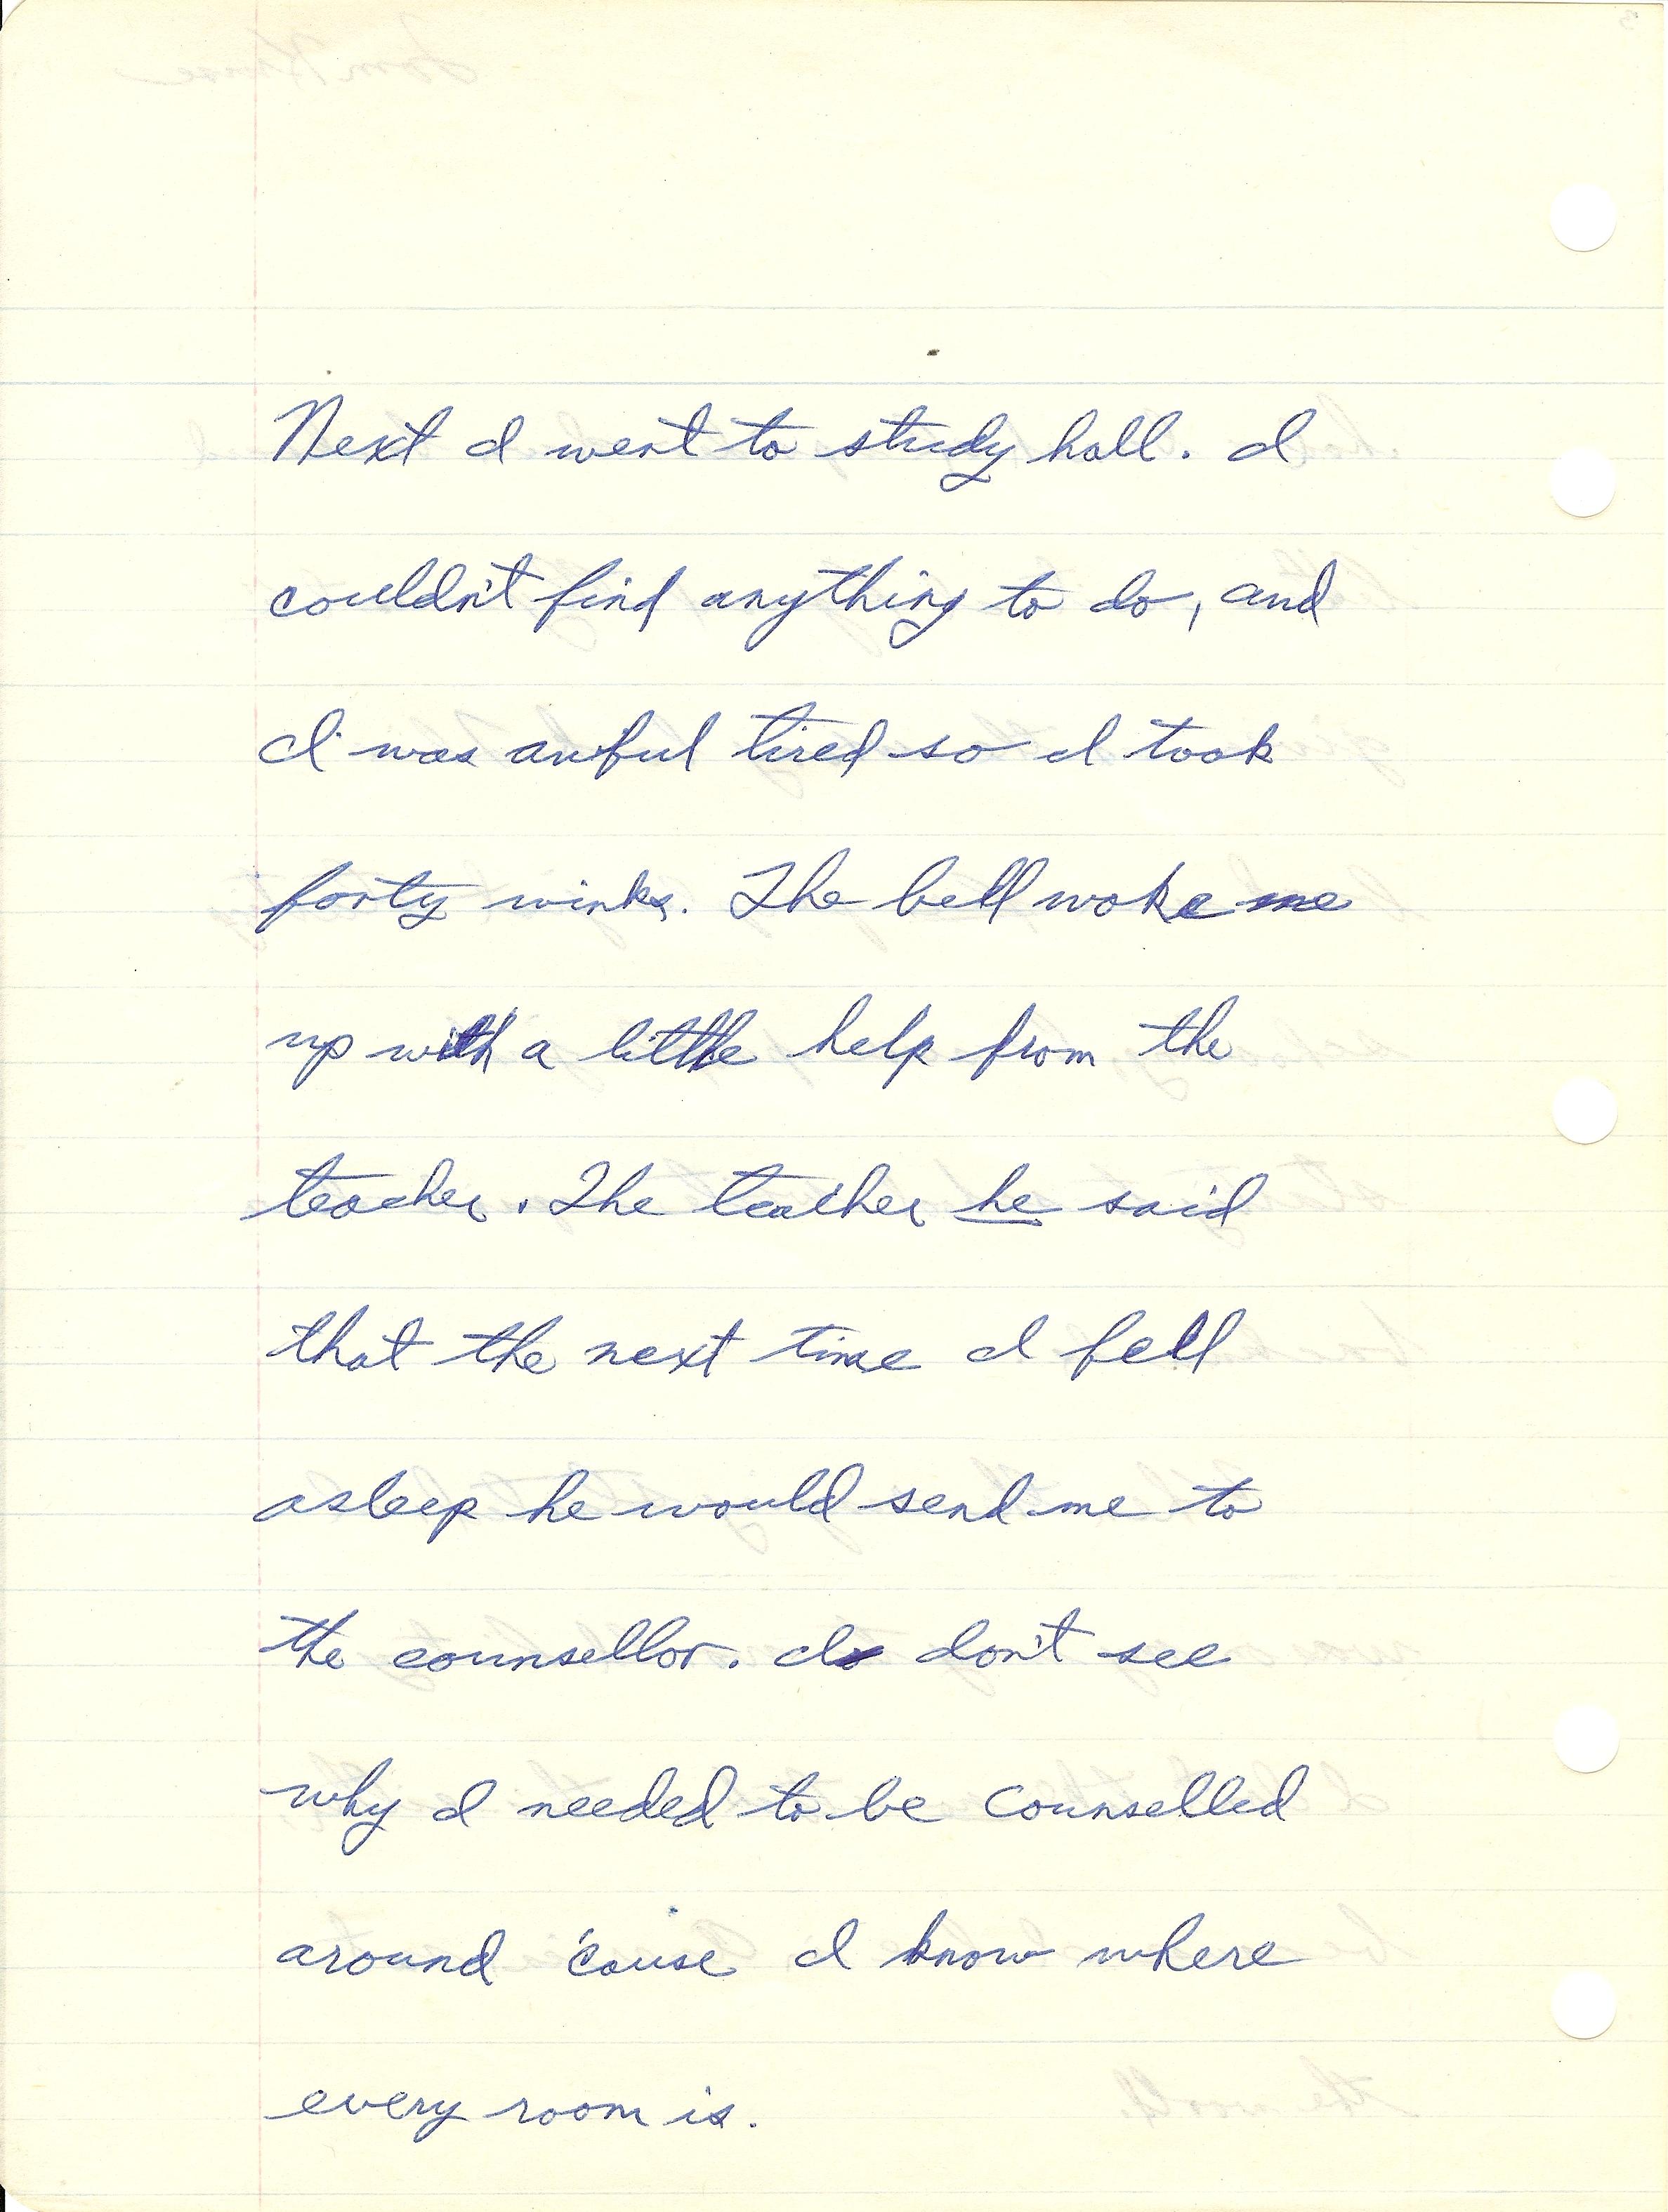 Next I went to study hall. I
couldn't find anything to do, and
I was awful tired so I took
forty winks. The bell woke me
up with a little help from the
teacher. The teacher he said
that the next time I fell
asleep he would send me to
the counsellor. I don't see
why I needed to be counselled
around 'cause I know where
every room is.